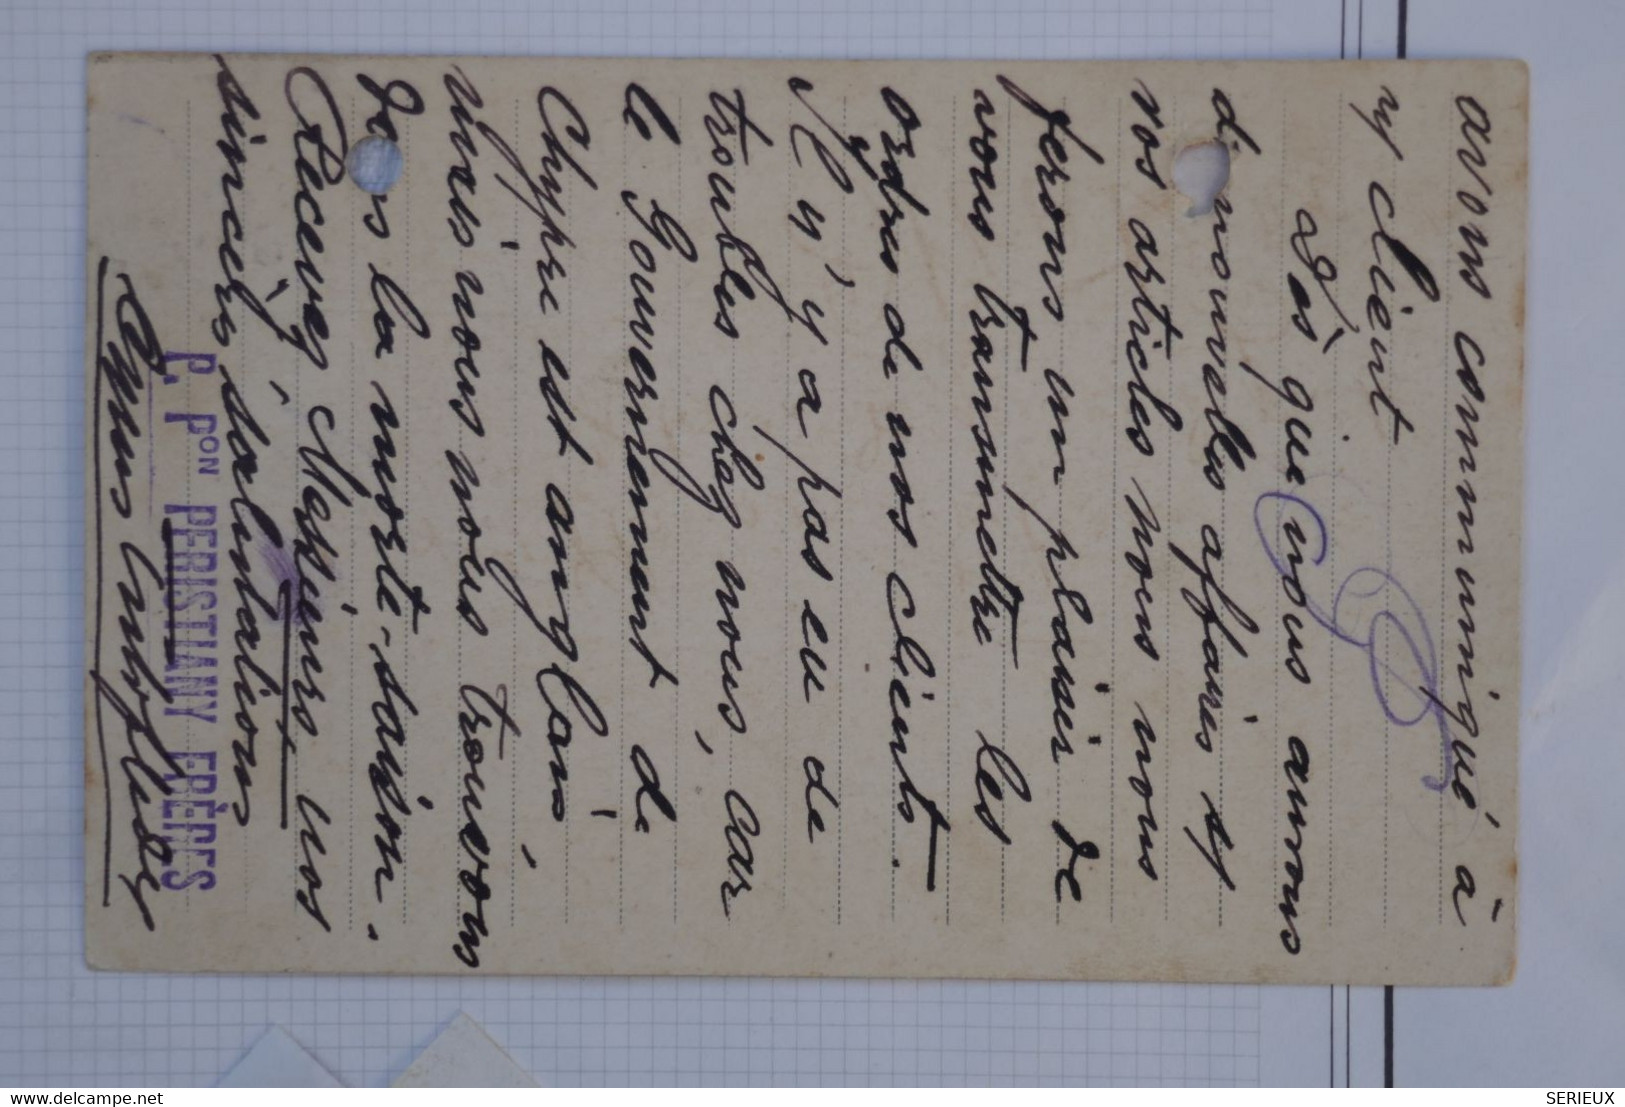 avons communiqué à
n/ client
Dès que nous aurons
de nouvelles affaires sf
vos articles nous nous
ferons un plaisir de
vous transmettre les
ordres de nos clients.
Il n'y a pas eu de
troubles chez nous, car
le Gouvernement de
Chypre est anglais
mais nous nous trouvons
Dans la morte-saison.
Recevez Messieurs, nos
sincères salutations
P. Pon PERISTIANY FRÈRES
SERIEUX
delcampe.net